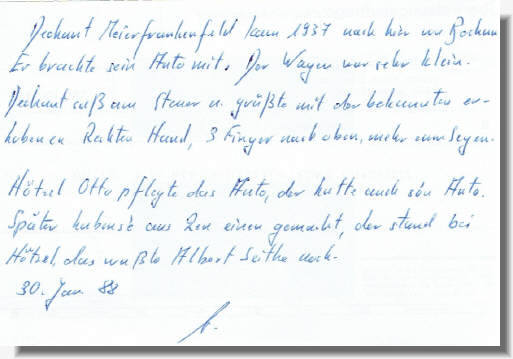 Dechant Meierfrankenfeld kam 1937 nach hier von Bochum
Er brachte sein Auto mit. Der Wagen war sehr klein.
Dechant saß am Steuer u. grüßte mit der bekannten er-
hobenen Rechten Hand, 3 Finger nach oben, mehr zum Segen.
Hötzel Otto pflegte das Auto, der hatte auch son Auto.
Später habens'e aus 2en einen gemacht, der stand bei
Hötzel, das wußte Albert Seithe noch.
30. Jan. 88